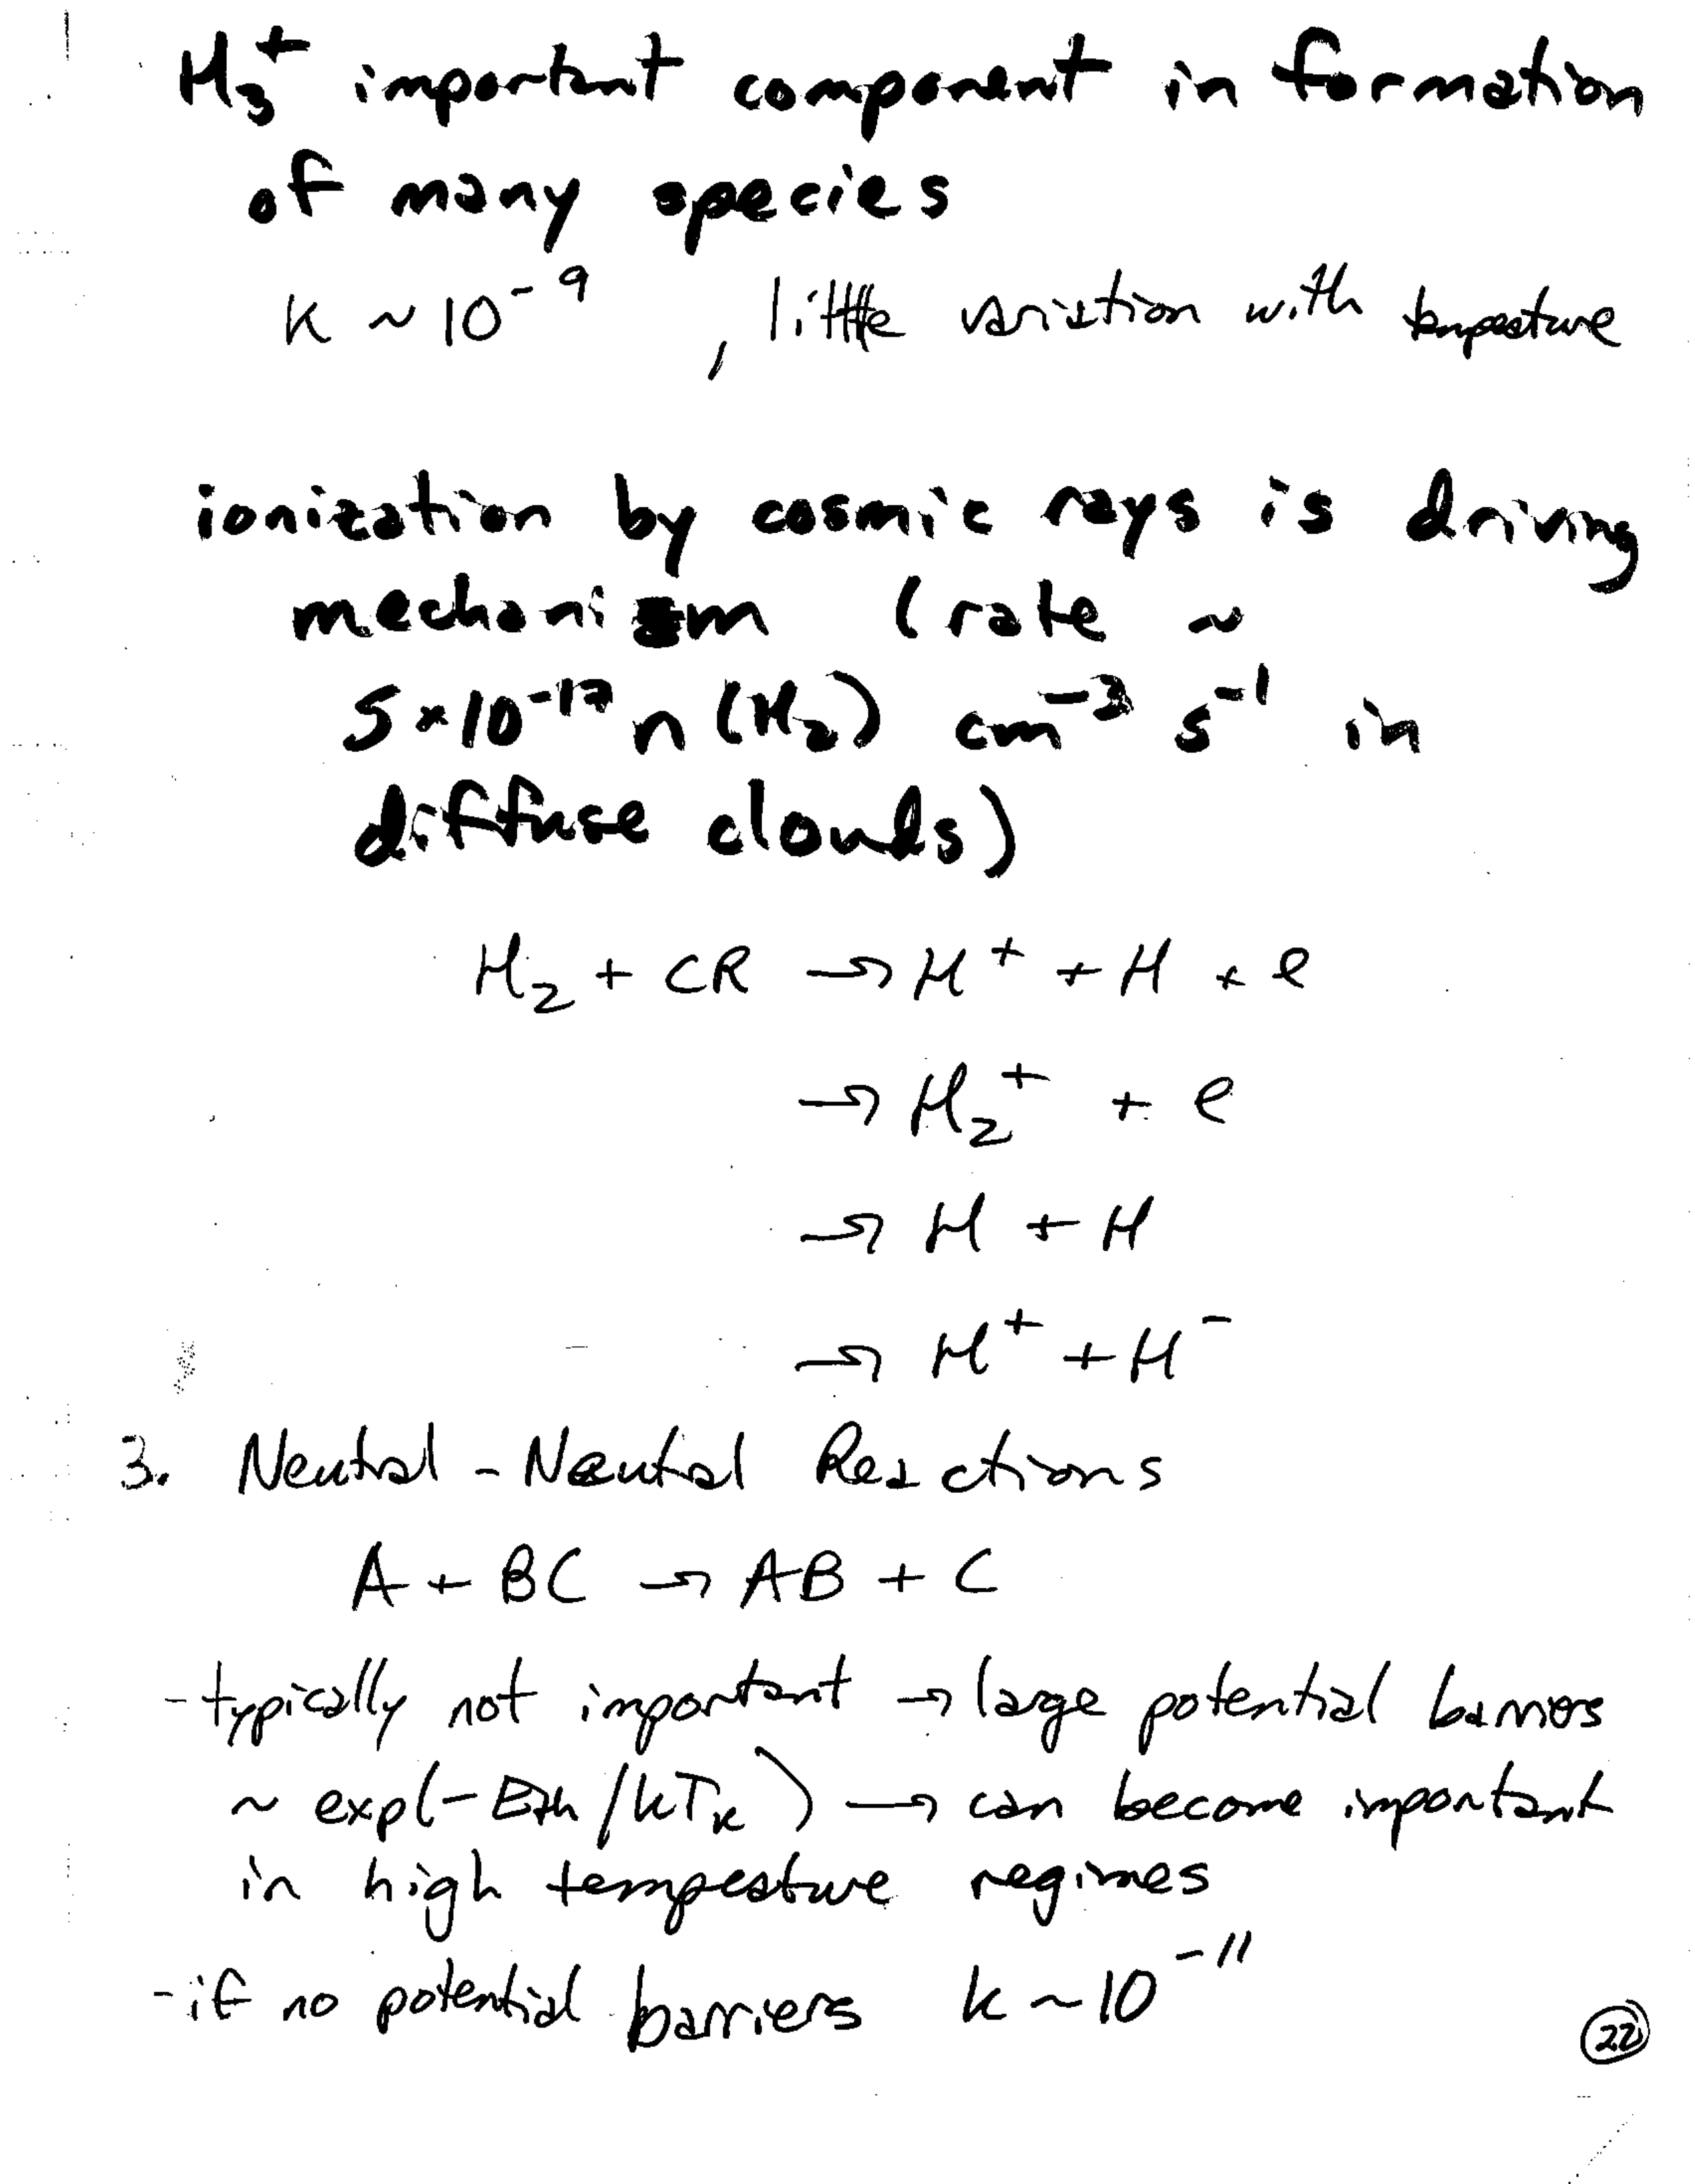 H₃⁺ important component in formation
of many species
k ~ 10⁻⁹ , little variation with temperature
ionization by cosmic rays is driving
mechanism (rate ~
5×10⁻¹⁷ n(H₂) cm⁻³ s⁻¹ in
diffuse clouds)
H₂ + CR → H⁺ + H + e
→ H₂⁺ + e
→ H + H
→ H⁺ + H⁻
3. Neutral - Neutral Reactions
A + BC → AB + C
- typically not important → large potential barriers
~ exp(-Eth/kTk) → can become important
in high temperature regimes
- if no potential barriers k ~ 10⁻¹¹
22